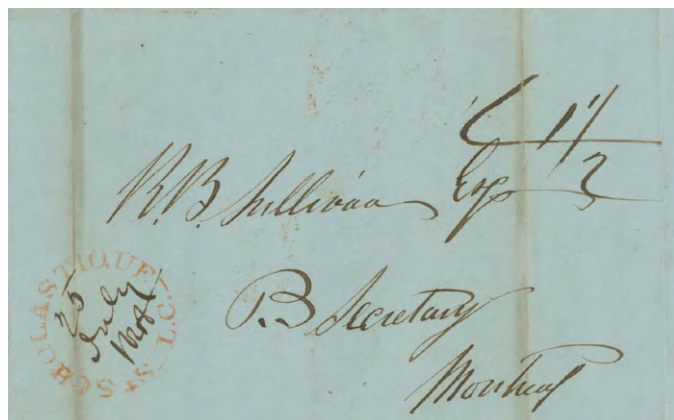 R.B. Sullivan Esq
Secretary
Montreal
ST SCHOLASTIQUE L.C.
25
July